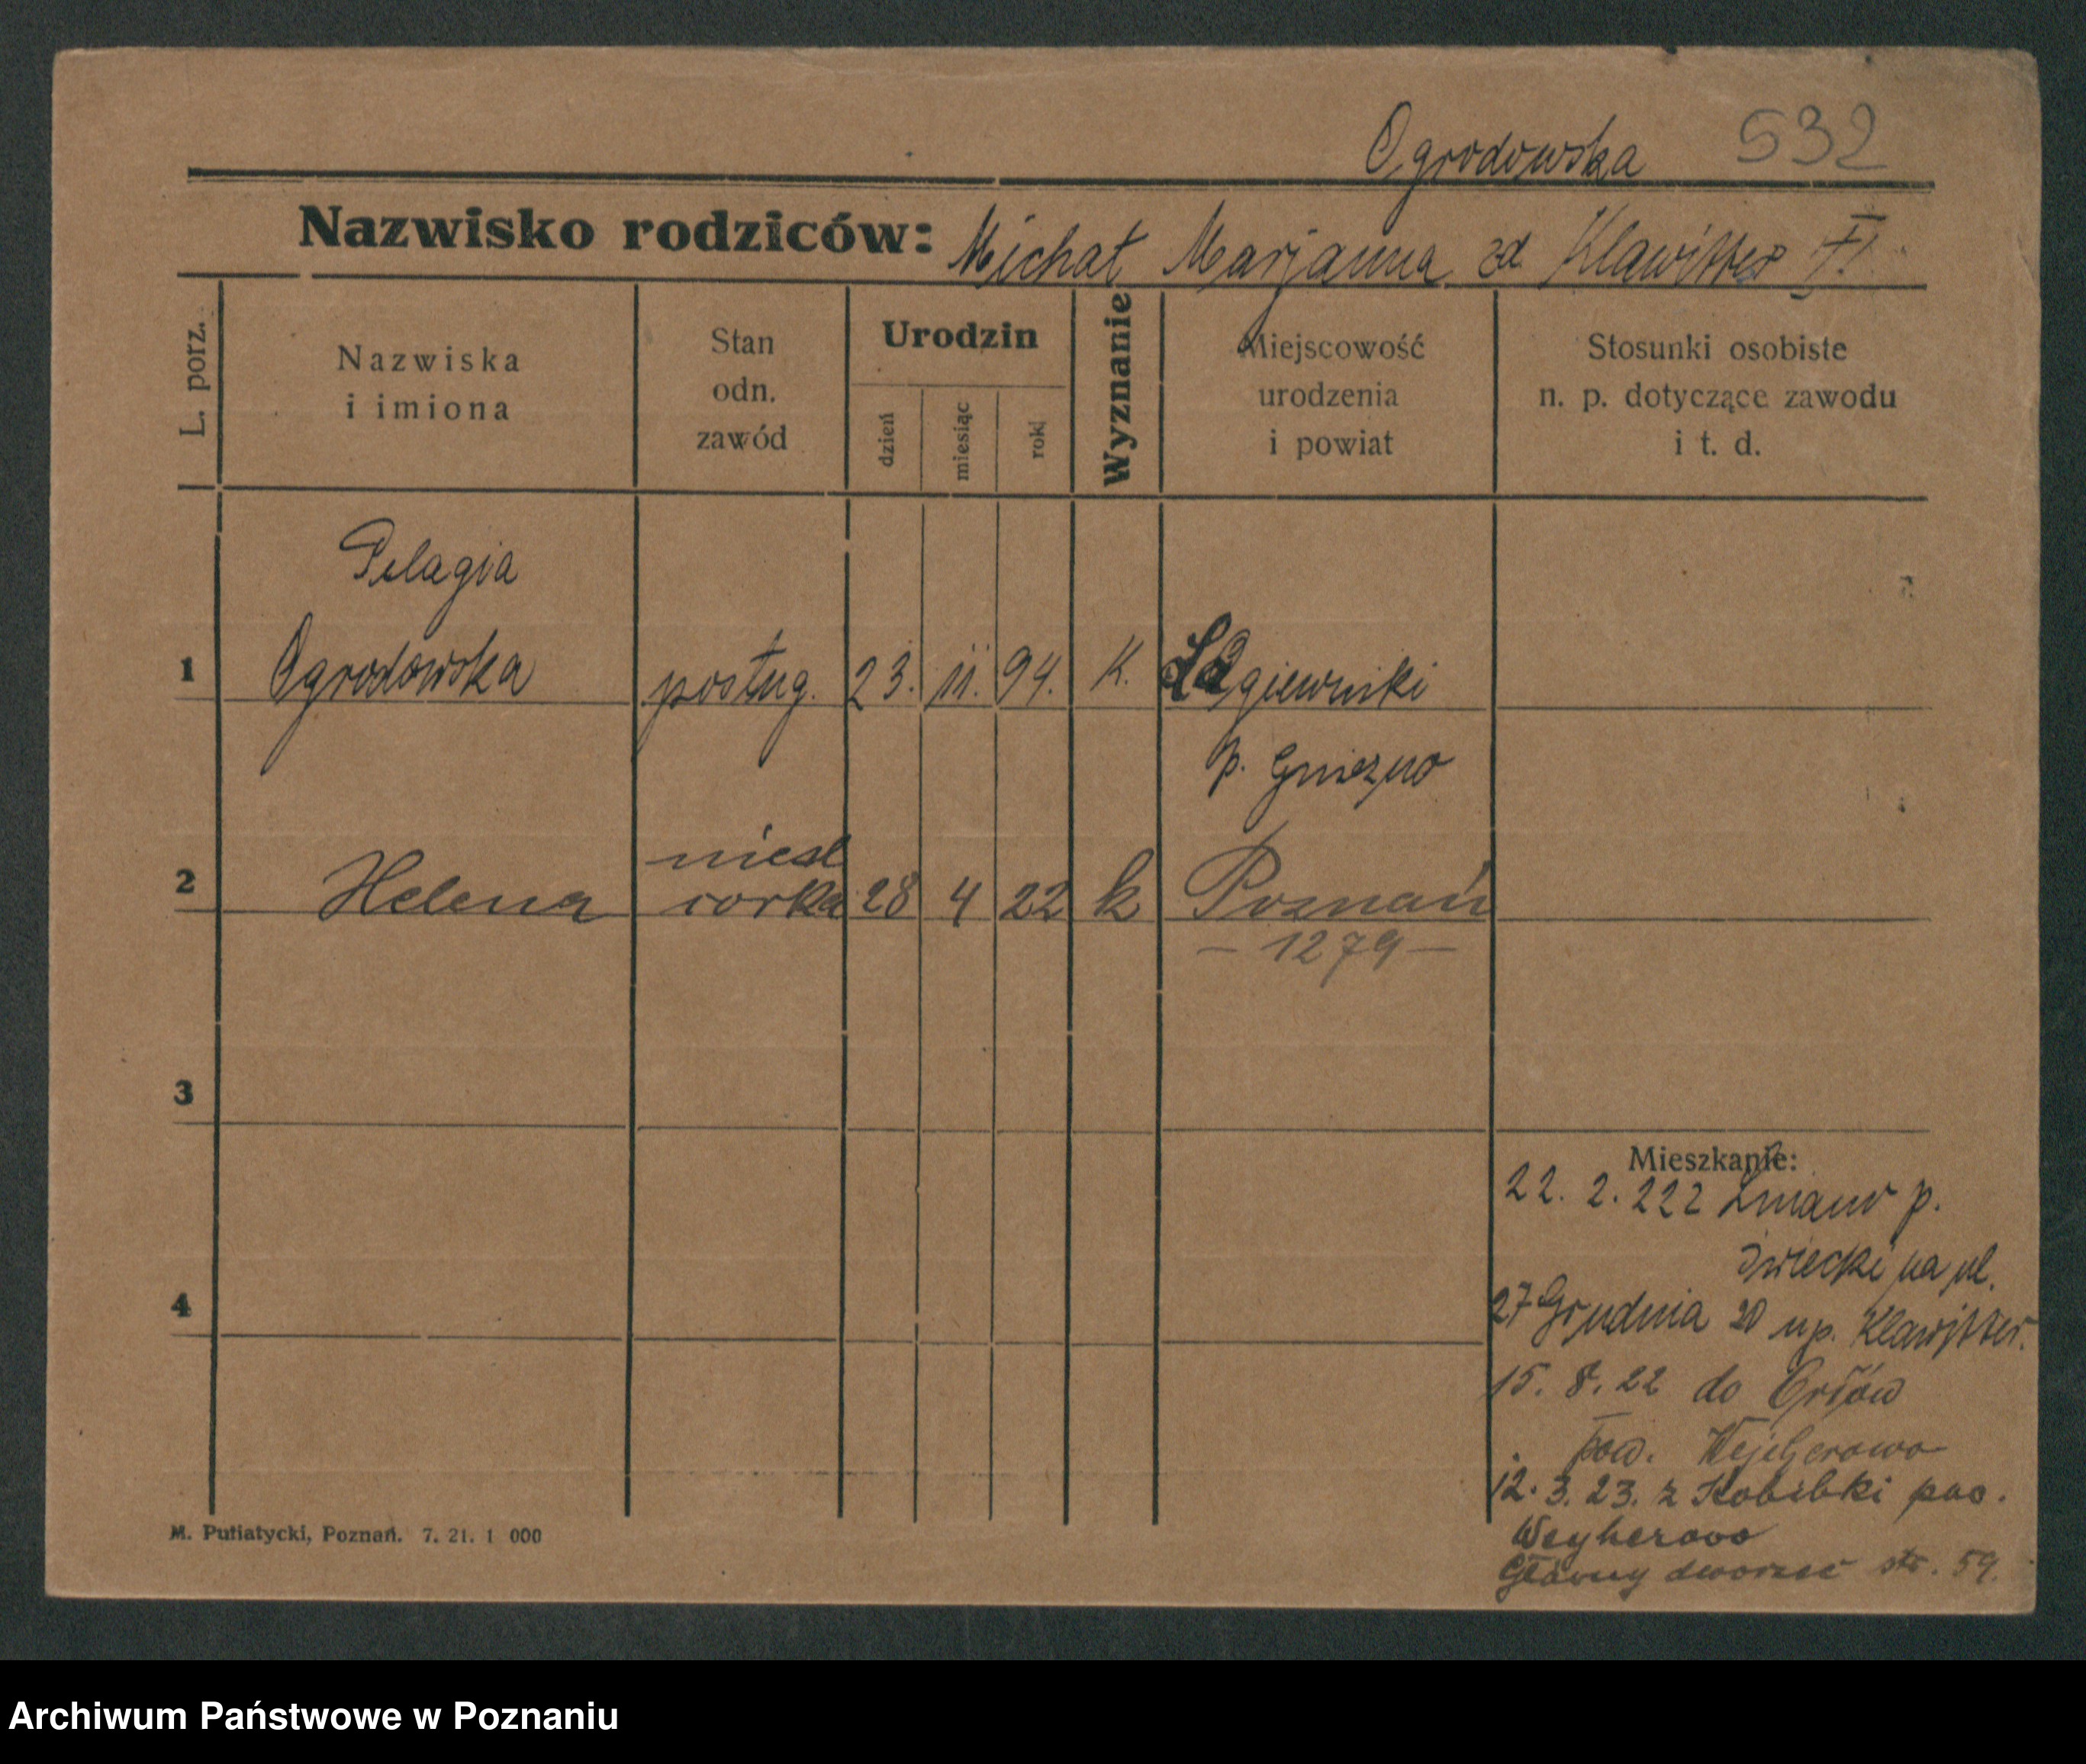 Ogrodowska 532
Nazwisko rodziców: Michał Marjanna zd Klawitter
L. porz.
Nazwiska
i imiona
Stan
odn.
zawód
Urodzin
dzień
miesiąc
rok
Wyznanie
Miejscowość
urodzenia
i powiat
Stosunki osobiste
n. p. dotyczące zawodu
i t. d.
Pelagia
1 Ogrodowska posług. 23. 11. 94. K. Łagiewniki
p. Gniezno
nieśl
2 Helena corka 28 4 22 k Poznań
– 1279 –
3
Mieszkanie:
22. 2. 222 p.
na pl.
4
27 Grudnia 20 up. Klawitter.
15. 8. 22 do Orłów
pow. Wejherowo
12. 3. 23. z Kobibki pow.
Weyherowo
Główny dworzec str. 59.
M. Putiatycki, Poznań. 7. 21. 1 000
Archiwum Państwowe w Poznaniu